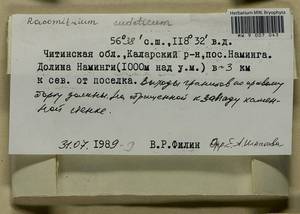 Herbarium MW, Bryophyta
MW 9 007 043
Racomitrium sudeticum
56°38' с.ш., 118°32' в.д.
Читинская обл., Каларский р-н, пос. Наминга.
Долина Наминги (1000м над у.м.) в ~3 км
к сев. от поселка. Выходы гранитов по правому
борту долины. На обращенной к западу камен-
ной стенке.
31.07.1989 В.Р.Филин Опр.